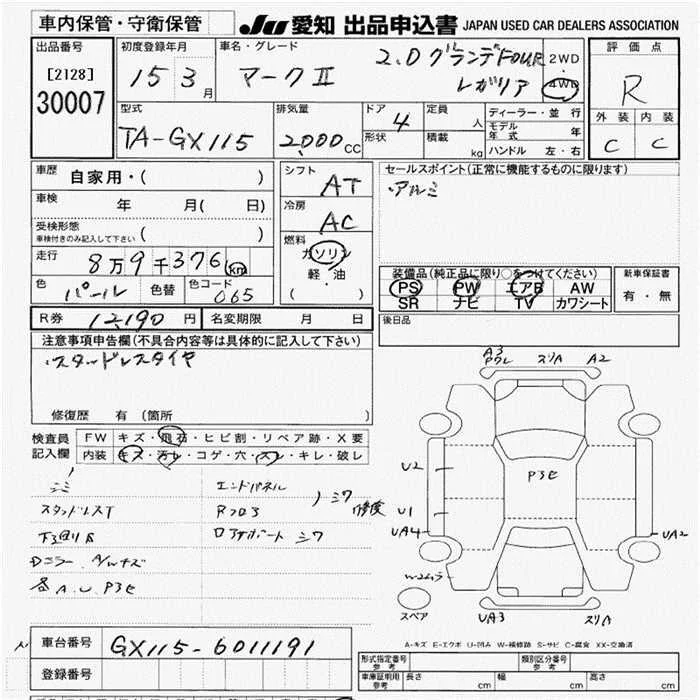 車内保管・守衛保管
JU 愛知 出品申込書 JAPAN USED CAR DEALERS ASSOCIATION
出品番号
[2128]
30007
初度登録年月
15 3 月
車名・グレード
マークⅡ
2.0 グランデFOUR
レガリア
2WD
4WD
評価点
R
外装 内装
C C
型式
TA-GX115
排気量
2,000 CC
ドア 4
形状
定員 人
積載 kg
ディーラー・並行
モデル年式 年
ハンドル 左・右
車歴 自家用・( )
車検 年 月( 日)
受検形態
車検付きのみ記入して下さい ( )
走行 8万9千376 km
色 パール 色替 色コード 065
シフト AT
冷房 AC
燃料
ガソリン
軽・油
( )
セールスポイント(正常に機能するものに限ります)
・アルミ
装備品(純正品に限り○をつけてください)
PS PW エアB AW
SR ナビ TV カワシート
新車保証書
有・無
R券 12,190 円 名変期限 月 日
後日品
注意事項申告欄(不具合内容等は具体的に記入して下さい)
・スタッドレスタイヤ
修復歴 有 (箇所 )
検査員記入欄
FW キズ・飛石・ヒビ割・リペア跡・X要
内装 キズ・汚レ・コゲ・穴・スレ・キレ・破レ
エンドパネル
スタッドレスT
Rフロア
シワ
修復
シワ
各A.U P3E
A3
スリA A2
U2
P3E
U1
UA4
UA2
スペア
UA3 スリA
A-キズ E-エクボ U-凹み W-補修跡 S-サビ C-腐食 XX-交換済
車台番号 GX115-6011191
登録番号
形式指定番号 参考
類別区分番号 参考
車庫証明用 参考 長さ cm 幅 cm 高さ cm